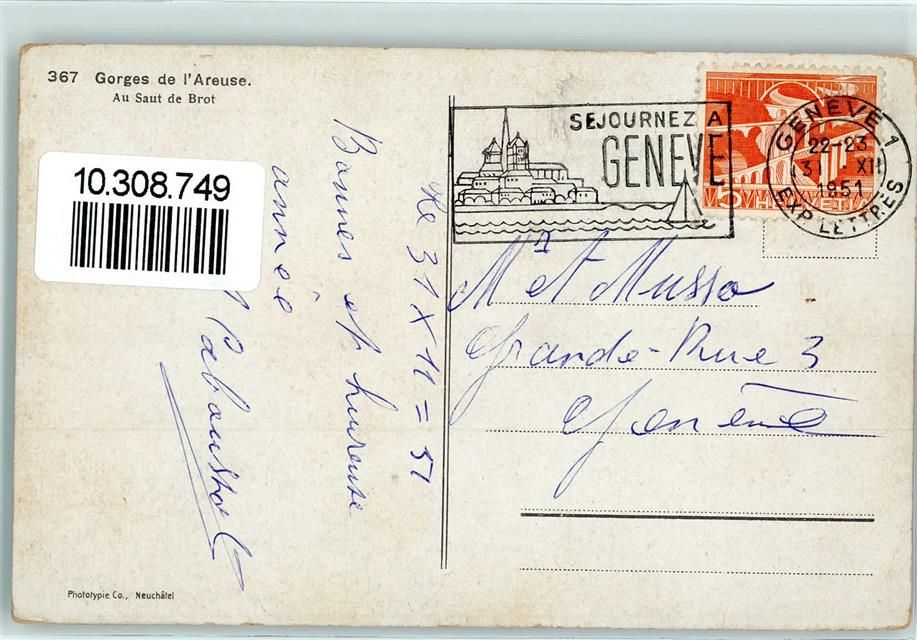 367 Gorges de l'Areuse.
Au Saut de Brot
10.308.749
SEJOURNEZ A
GENEVE
GENEVE 1
22-23
31 XII
1951
EXP. LETTRES
5 HELVETIA
le 31 XII = 51
Bonnes et heureuse
année
Mr et Musso
Grande-Rue 3
Genève
Phototypie Co., Neuchâtel